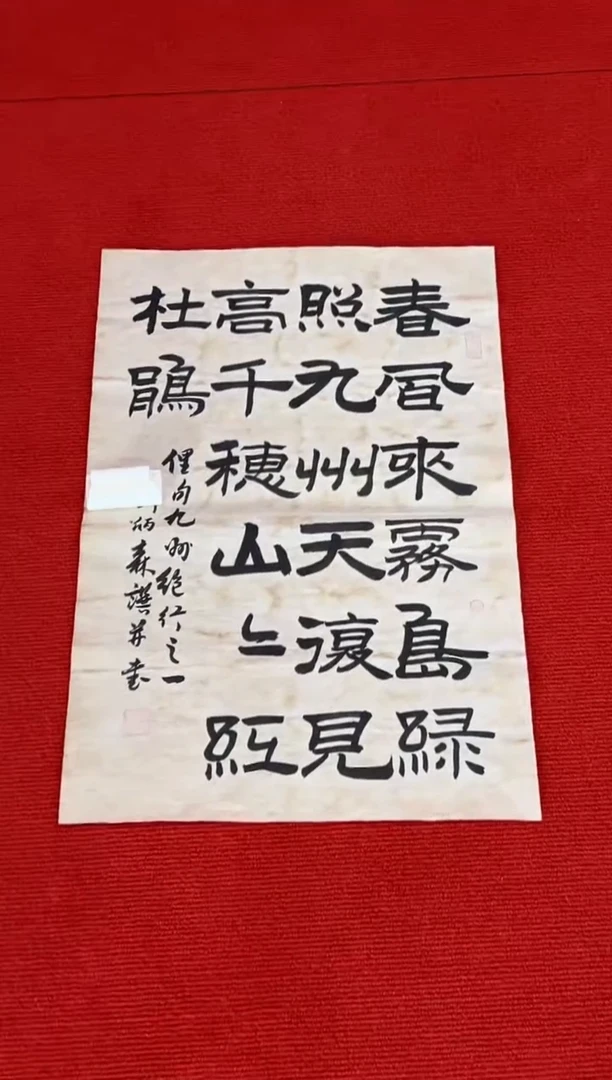 春風來霧島綠
照九州天復見
高千穂山々紅
杜鵑
俚句九州絕紅之一
森謨并書